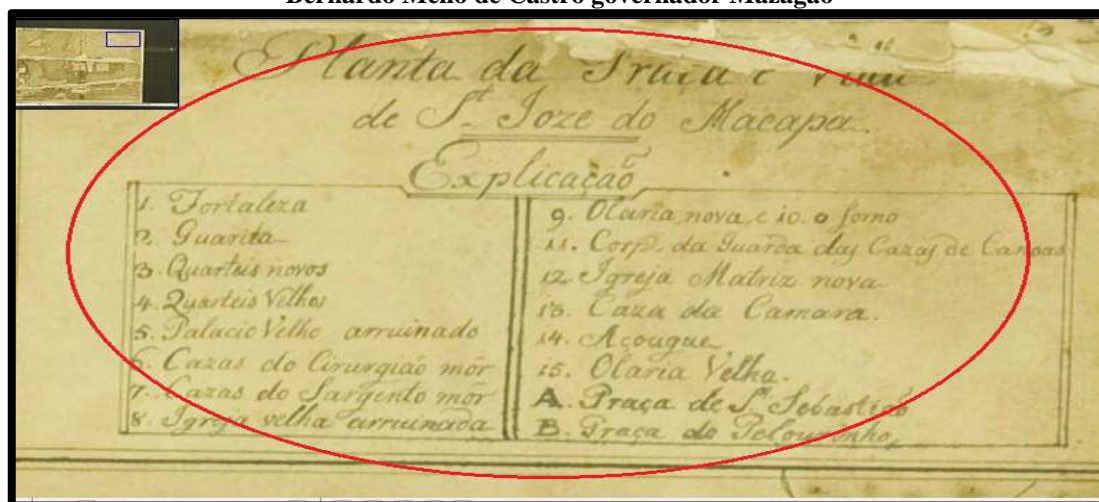 Bernardo de Castro governador Mazagão
Planta da Praça e
de S.t Joze do Macapa.
Explicacaõ
1. Fortaleza
2. Guarita
3. Quarteis novos
4. Quarteis Velhos
5. Palacio Velho arruinado
6. Cazas do Cirurgiaõ mór
7. Cazas do Sargento mór
8. Igreja velha arruinada
9. Olaria nova, e 10. o forno
11. Corpo da Guarda das Cazas de Canoas
12 Igreja Matriz nova
13. Caza da Camara.
14. Açougue
15. Olaria Velha.
A. Praça de S. Sebastiaõ
B. Praça do Pelourinho,